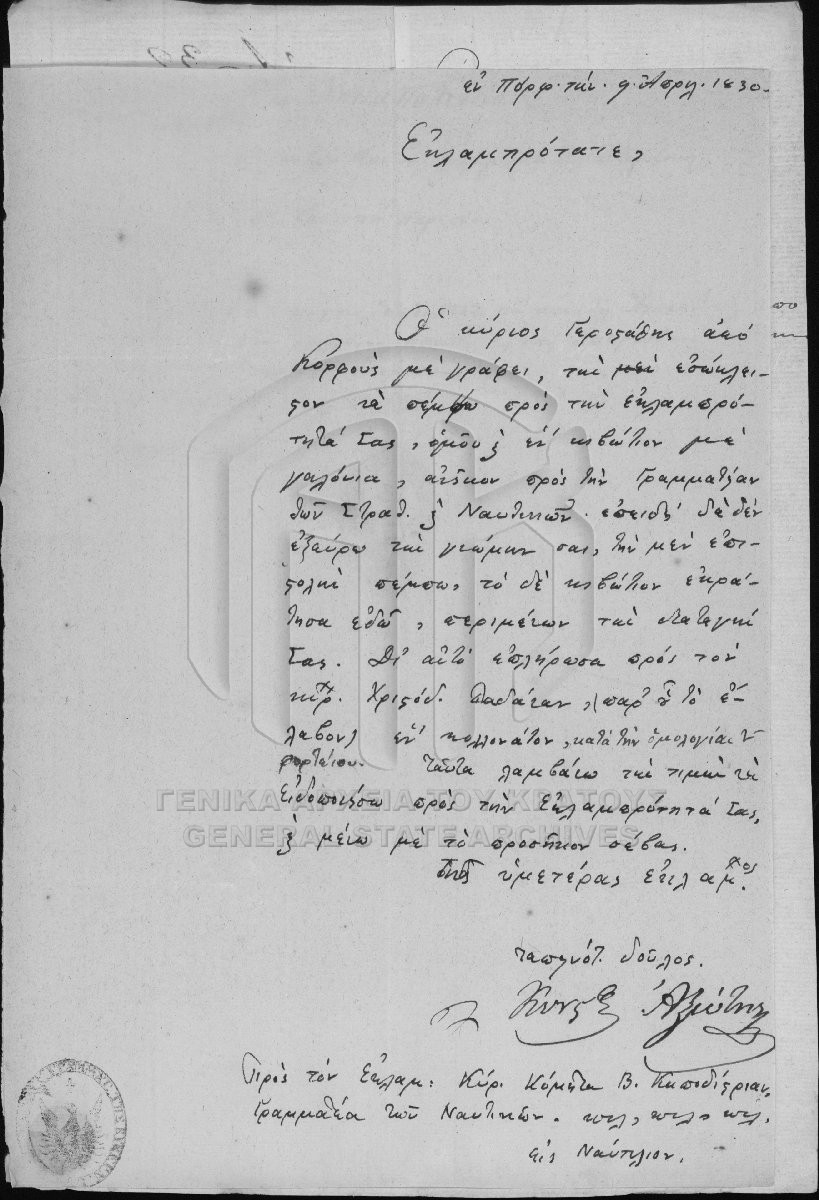 ἐν Πόρῳ τὴν 9 Ἀπριλ. 1830.
Ἐκλαμπρότατε,
Ὁ κύριος Γεροστάθης ἀπό
Κορφοὺς μὲ γράφει, τὴν
νὰ πέμψω πρὸς τὴν ἐκλαμπρό-
τητά Σας, ὁμοῦ ἓν κιβώτιον μὲ
γαλόνια, ἀνῆκον πρὸς τὴν Γραμματείαν
τῶν Στρατ. Ναυτικῶν. ἐπειδὴ δὲ δὲν
ἐξεύρω τὴν γνώμην σας, τὴν μὲν ἐπι-
στολὴν πέμπω, τὸ δὲ κιβώτιον ἐκρά-
τησα ἐδῶ, περιμένων τὴν διαταγήν
Σας. Δι' αὐτὸ ἐπλήρωσα πρὸς τὸν
κύρ. Χριστόδ. (παρ' οὗ τὸ ἔ-
λαβον) ἓν κολλονάτον, κατὰ τὴν ὁμολογίαν
φορτσίου. Ταῦτα λαμβάνω τὴν τιμὴν νὰ
εἰδοποιήσω πρὸς τὴν Ἐκλαμπρότητά Σας,
μένω μὲ τὸ προσῆκον σέβας.
Τῆς ὑμετέρας ἐκλαμ.τος
ταπεινότ. δοῦλος.
Κωνστ. Ἀξιώτης
Πρὸς τὸν Ἐκλαμ: Κύρ. Κόμητα Β. Καποδίστριαν,
Γραμματέα τῶν Ναυτικῶν.
εἰς Ναύπλιον.
ΓΕΝΙΚΑ ΑΡΧΕΙΑ ΤΟΥ ΚΡΑΤΟΥΣ
GENERAL STATE ARCHIVES